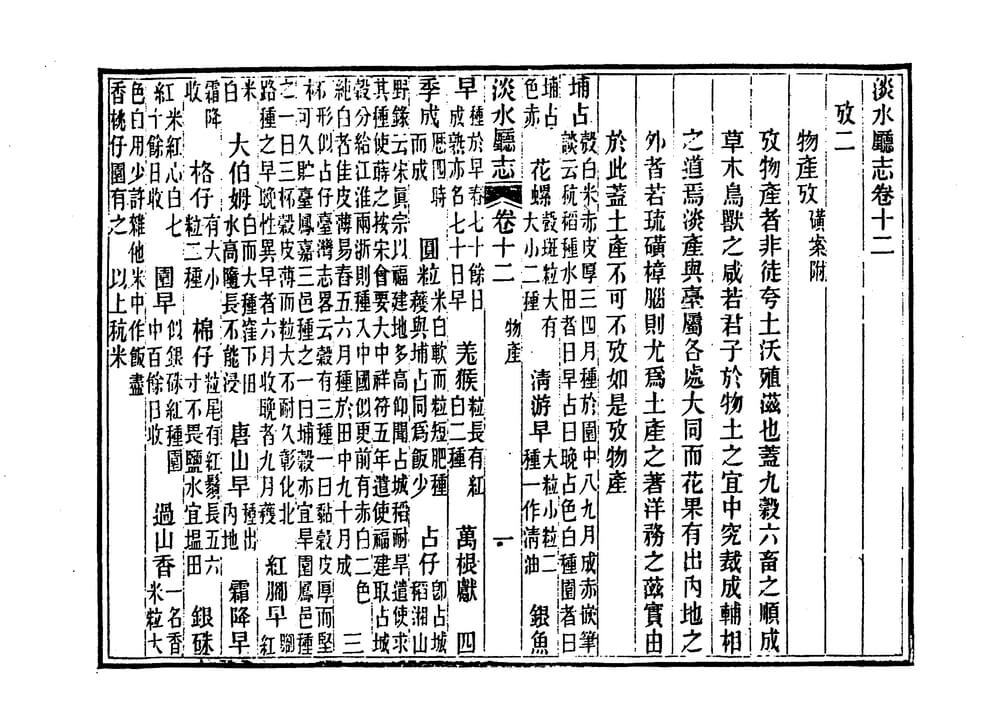 淡水廳志卷十二
攷二
物產攷 磺案附
攷物產者非徒夸土沃殖滋也蓋九穀六畜之順成
草木鳥獸之咸若君子於物土之宜中究裁成輔相
之道焉淡產與臺屬各處大同而花果有出內地之
外者若琉磺樟腦則尤爲土產之著洋務之茲實由
於此蓋土產不可不攷如是攷物產
埔占 穀白米赤皮厚三四月種於園中八九月成赤嵌筆談云秔稻種水田者曰早占曰晚占色白種園者曰
埔占色赤 花螺 穀斑粒大有大小二種 淸游早 大小粒二種一作淸油 銀魚
淡水廳志 卷十二 物產 一
早 種於早春七十餘日成熟亦名七十日早 羗猴 粒長有紅白二種 萬根獻 四
季成 歷四時而成 圓粒 米白軟而粒短肥種穫與埔占同爲飯少 占仔 卽占城稻湘山
野錄云宋眞宗以福建地多高仰聞占城稻耐旱遣使求其種使蒔之按宋會要大中祥符五年遣使福建取占城
穀分給江淮兩浙則種入中國似更前有赤白二色純白者佳皮薄易舂五六月種於田中九十月成 三
杯 形似占仔臺灣志畧云穀有三種一曰黏穀皮厚而堅可久貯臺鳳嘉三邑種之一曰埔穀亦宜旱園鳳邑種
之一曰三杯穀皮薄而粒大不耐久彰化北路種之早晚性異早者六月收晚者九月穫 紅腳早 腳紅
米白 大伯姆 米白而大種窪下田水高隨長不能浸 唐山早 種出內地 霜降早
霜降收 格仔 有大小粒二種 棉仔 粒尾有紅鬚長五六寸不畏鹽水宜塭田 銀硃
紅 米紅心白七十餘日收 園早 似銀硃紅種園中百餘日收 過山香 一名香米粒大
色白用少許雜他米中作飯盡香桃仔園有之 以上秔米